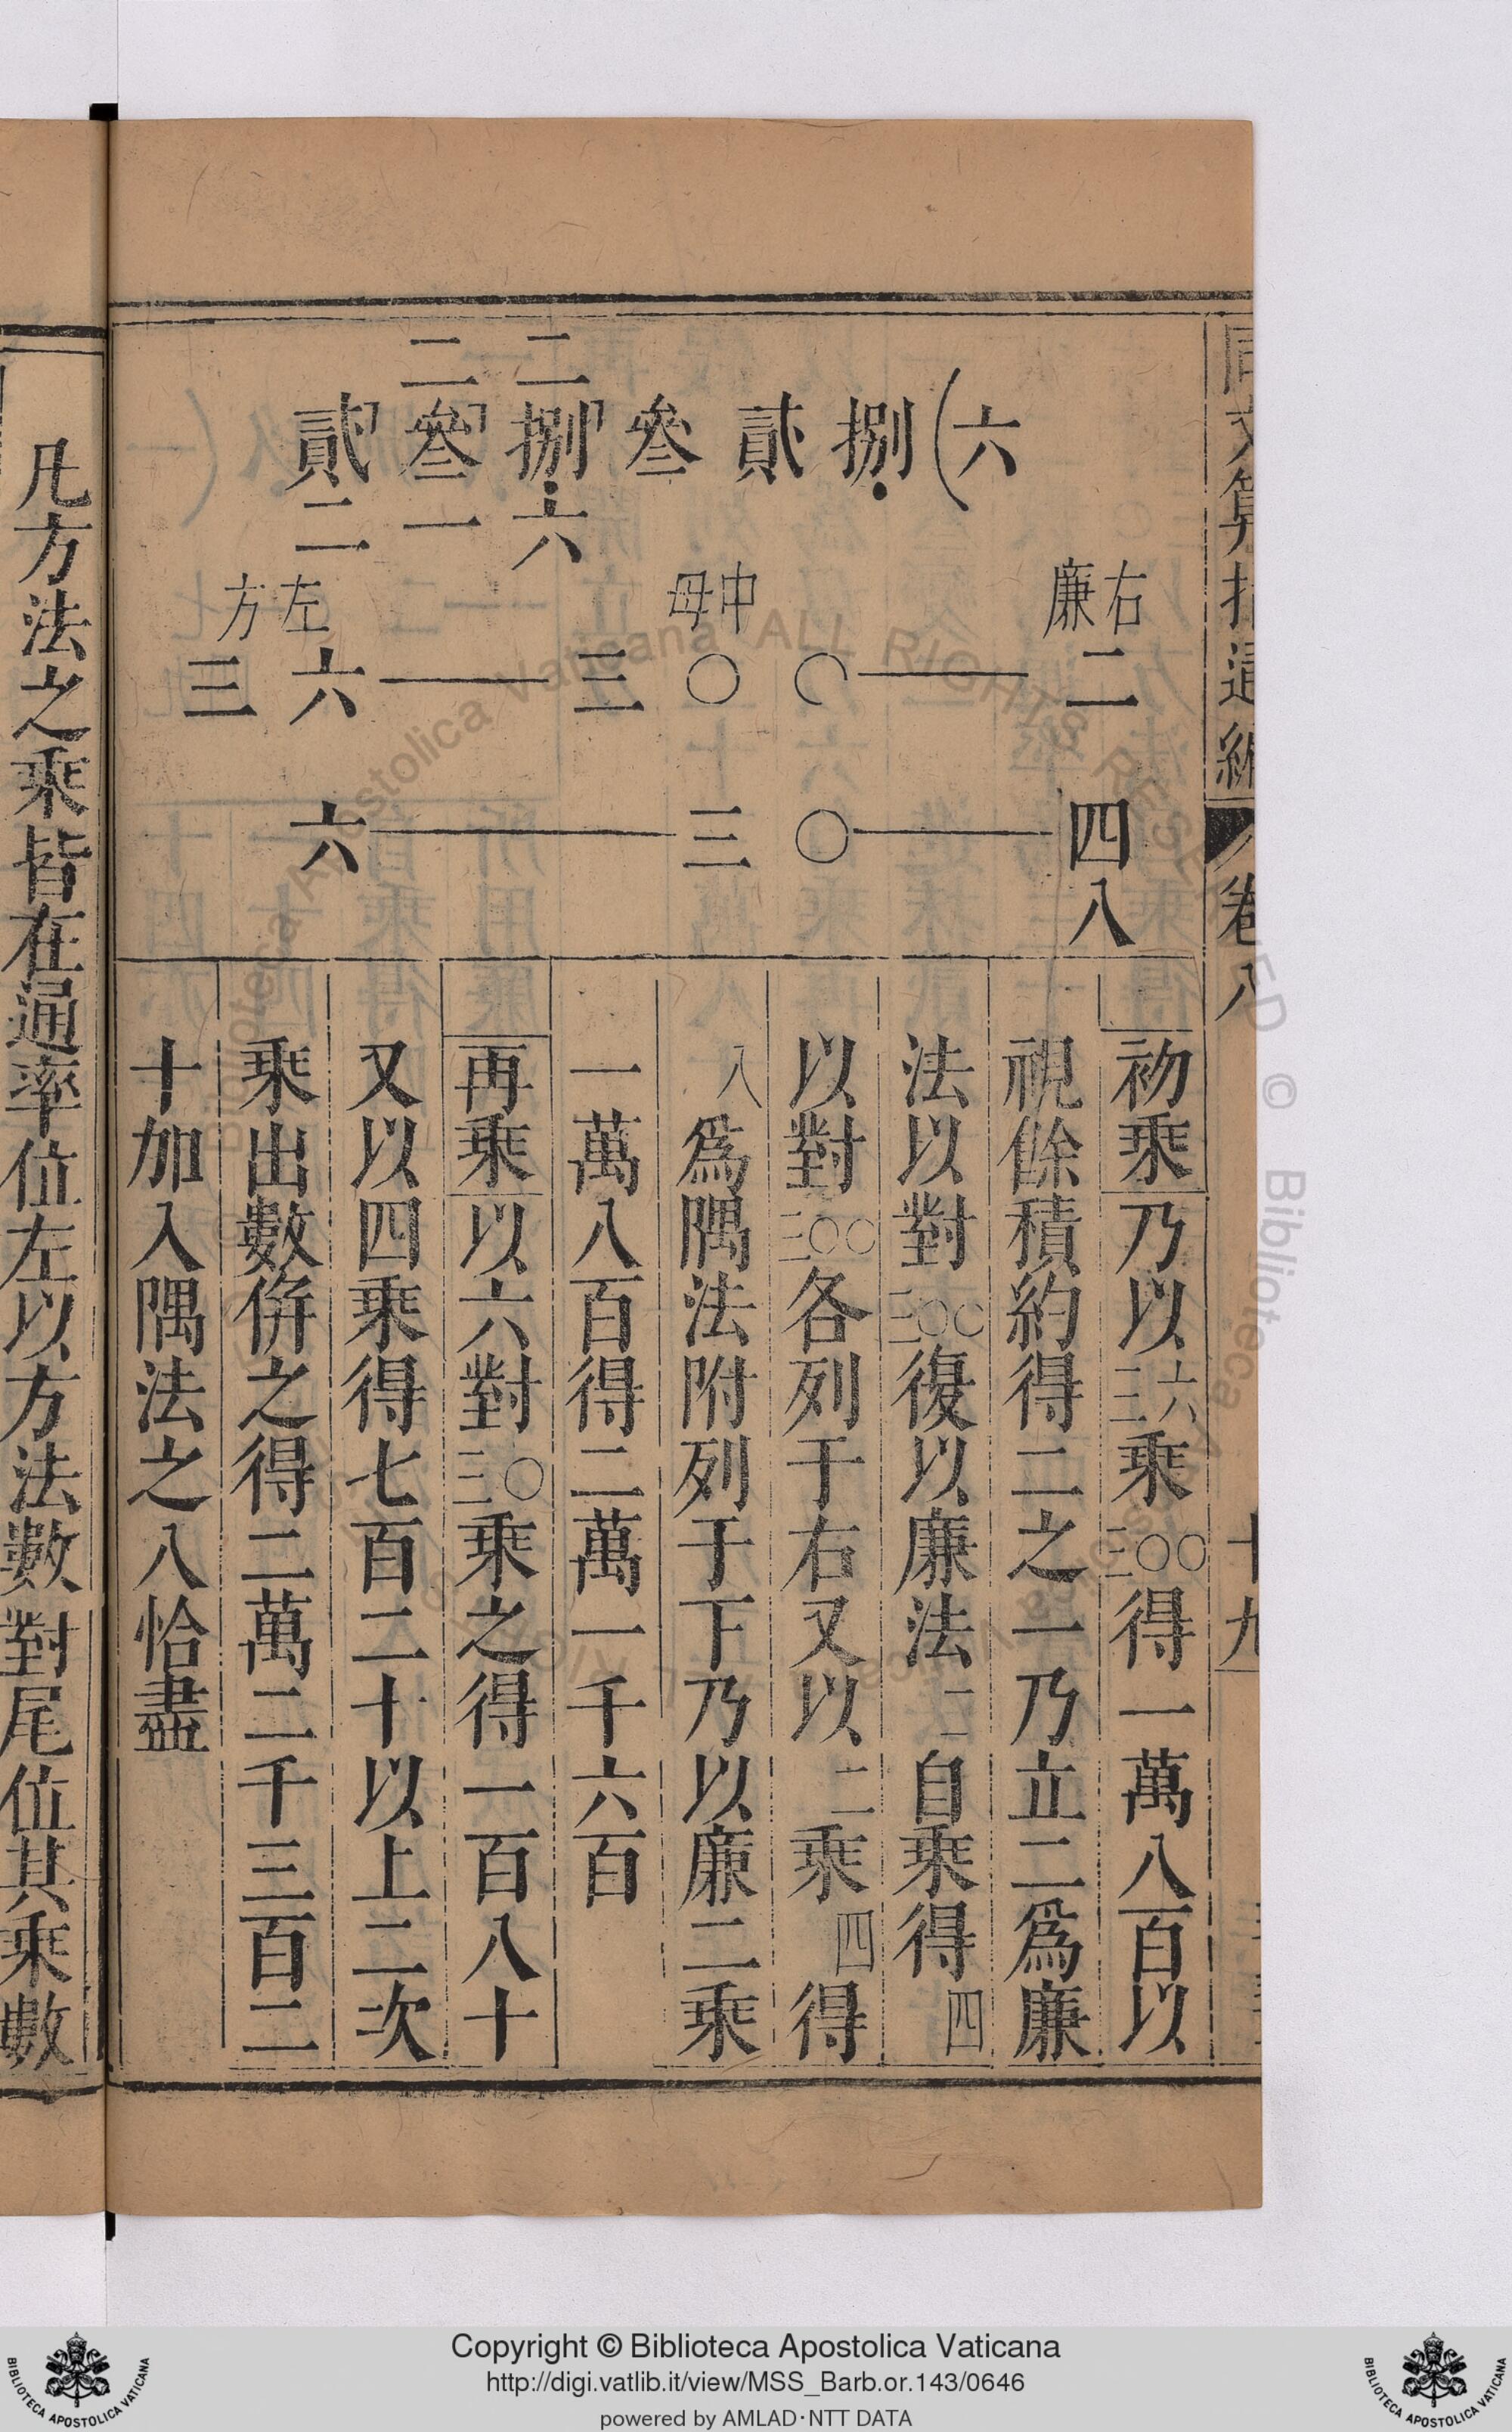 初乘乃以三六乘三〇〇得一萬八百以
視餘積約得二之一乃立二爲廉
法以對三〇〇復以廉法二自乘得四
以對三〇〇各列于右又以二乘四得
八爲隅法附列于下乃以廉二乘
一萬八百得二萬一千六百
再乘以六對三〇乘之得一百八十
又以四乘得七百二十以上二次
乘出數併之得二萬二千三百二
十加入隅法之八恰盡
二二
貳叄捌叄貳捌(六
二一六
左方 中母 右廉
三六——三〇〇——二
六——三〇——四
八
卷八
十九
凡方法之乘皆在通率位左以方法數對尾位其乘數
Copyright © Biblioteca Apostolica Vaticana
http://digi.vatlib.it/view/MSS_Barb.or.143/0646
powered by AMLAD·NTT DATA
BIBLIOTECA APOSTOLICA VATICANA
BIBLIOTECA APOSTOLICA VATICANA